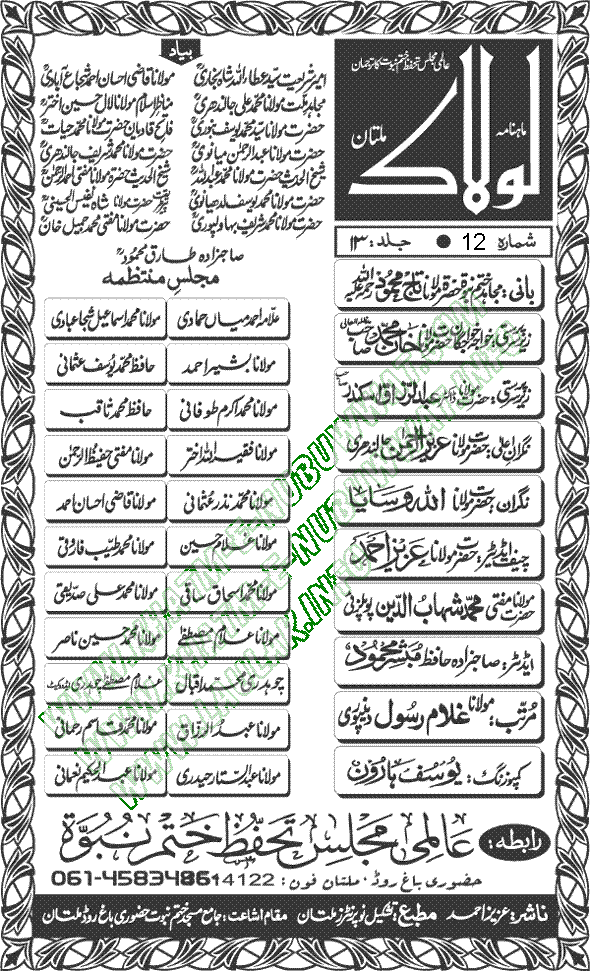 عالمی مجلس تحفظ ختم نبوت کا ترجمان
ماہنامہ
لولاک
ملتان
شمارہ 12 ● جلد : ۱۳
بانی : مجاہد ختم نبوۃ حضرۃ مولانا تاج محمود رحمۃ اللہ علیہ
زیر سرپرستی : خواجہ خواجگان حضرت مولانا خان محمد صاحب
زیر سرپرستی : حضرت مولانا ڈاکٹر عبدالرزاق اسکندر صاحب
نگران اعلی : حضرت مولانا عزیز الرحمن جالندھری
نگران : حضرت مولانا اللہ وسایا
چیف ایڈیٹر : حضرت مولانا عزیز احمد
حضرت مولانا مفتی محمد شہاب الدین پوپلزئی
ایڈیٹر : صاحبزادہ حافظ مبشر محمود
مرتب : مولانا غلام رسول دینپوری
کمپوزنگ : یوسف ہارون
بیاد
امیر شریعت سید عطاء اللہ شاہ بخاریؒ مولانا قاضی احسان احمد شجاع آبادیؒ
مجاہد ملت مولانا محمد علی جالندھریؒ مناظر اسلام مولانا لال حسین اخترؒ
حضرت مولانا سید محمد یوسف بنوریؒ فاتح قادیان حضرت مولانا محمد حیاتؒ
حضرت مولانا عبدالرحمن میانویؒ حضرت مولانا محمد شریف جالندھریؒ
شیخ الحدیث حضرت مولانا محمد عبداللہؒ شیخ الحدیث حضرۃ مولانا مفتی احمد الرحمنؒ
حضرت مولانا محمد یوسف لدھیانویؒ حضرت مولانا شاہ نفیس الحسینیؒ
حضرت مولانا محمد شریف بہاولپوریؒ حضرت مولانا مفتی محمد جمیل خانؒ
صاحبزادہ طارق محمودؒ
مجلس منتظمہ
علامہ احمد میاں حمادی مولانا محمد اسماعیل شجاعبادی
مولانا بشیر احمد حافظ محمد یوسف عثمانی
مولانا محمد اکرم طوفانی حافظ محمد ثاقب
مولانا فقیر اللہ اختر مولانا مفتی حفیظ الرحمن
مولانا محمد نذر عثمانی مولانا قاضی احسان احمد
مولانا غلام حسین مولانا محمد طیب فاروقی
مولانا محمد اسحاق ساقی مولانا محمد علی صدیقی
مولانا غلام مصطفے مولانا محمد حسین ناصر
چوہدری محمد اقبال غلام مصطفے چوہدری ایڈووکیٹ
مولانا عبدالرزاق مولانا محمد قاسم رحمانی
مولانا عبدالستار حیدری مولانا عبدالحکیم نعمانی
رابطہ : عالمی مجلس تحفظ ختم نبوۃ
حضوری باغ روڈ ، ملتان فون : 061-4583486
ناشر : عزیز احمد مطبع : تشکیل نو پرنٹرز ملتان مقام اشاعت : جامع مسجد ختم نبوت حضوری باغ روڈ ملتان